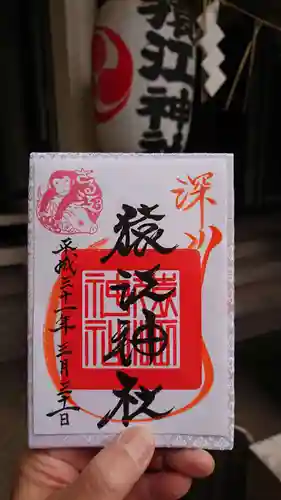 猿江神社
深川
猿江神社
平成三十一年三月二十一日
猿江神社